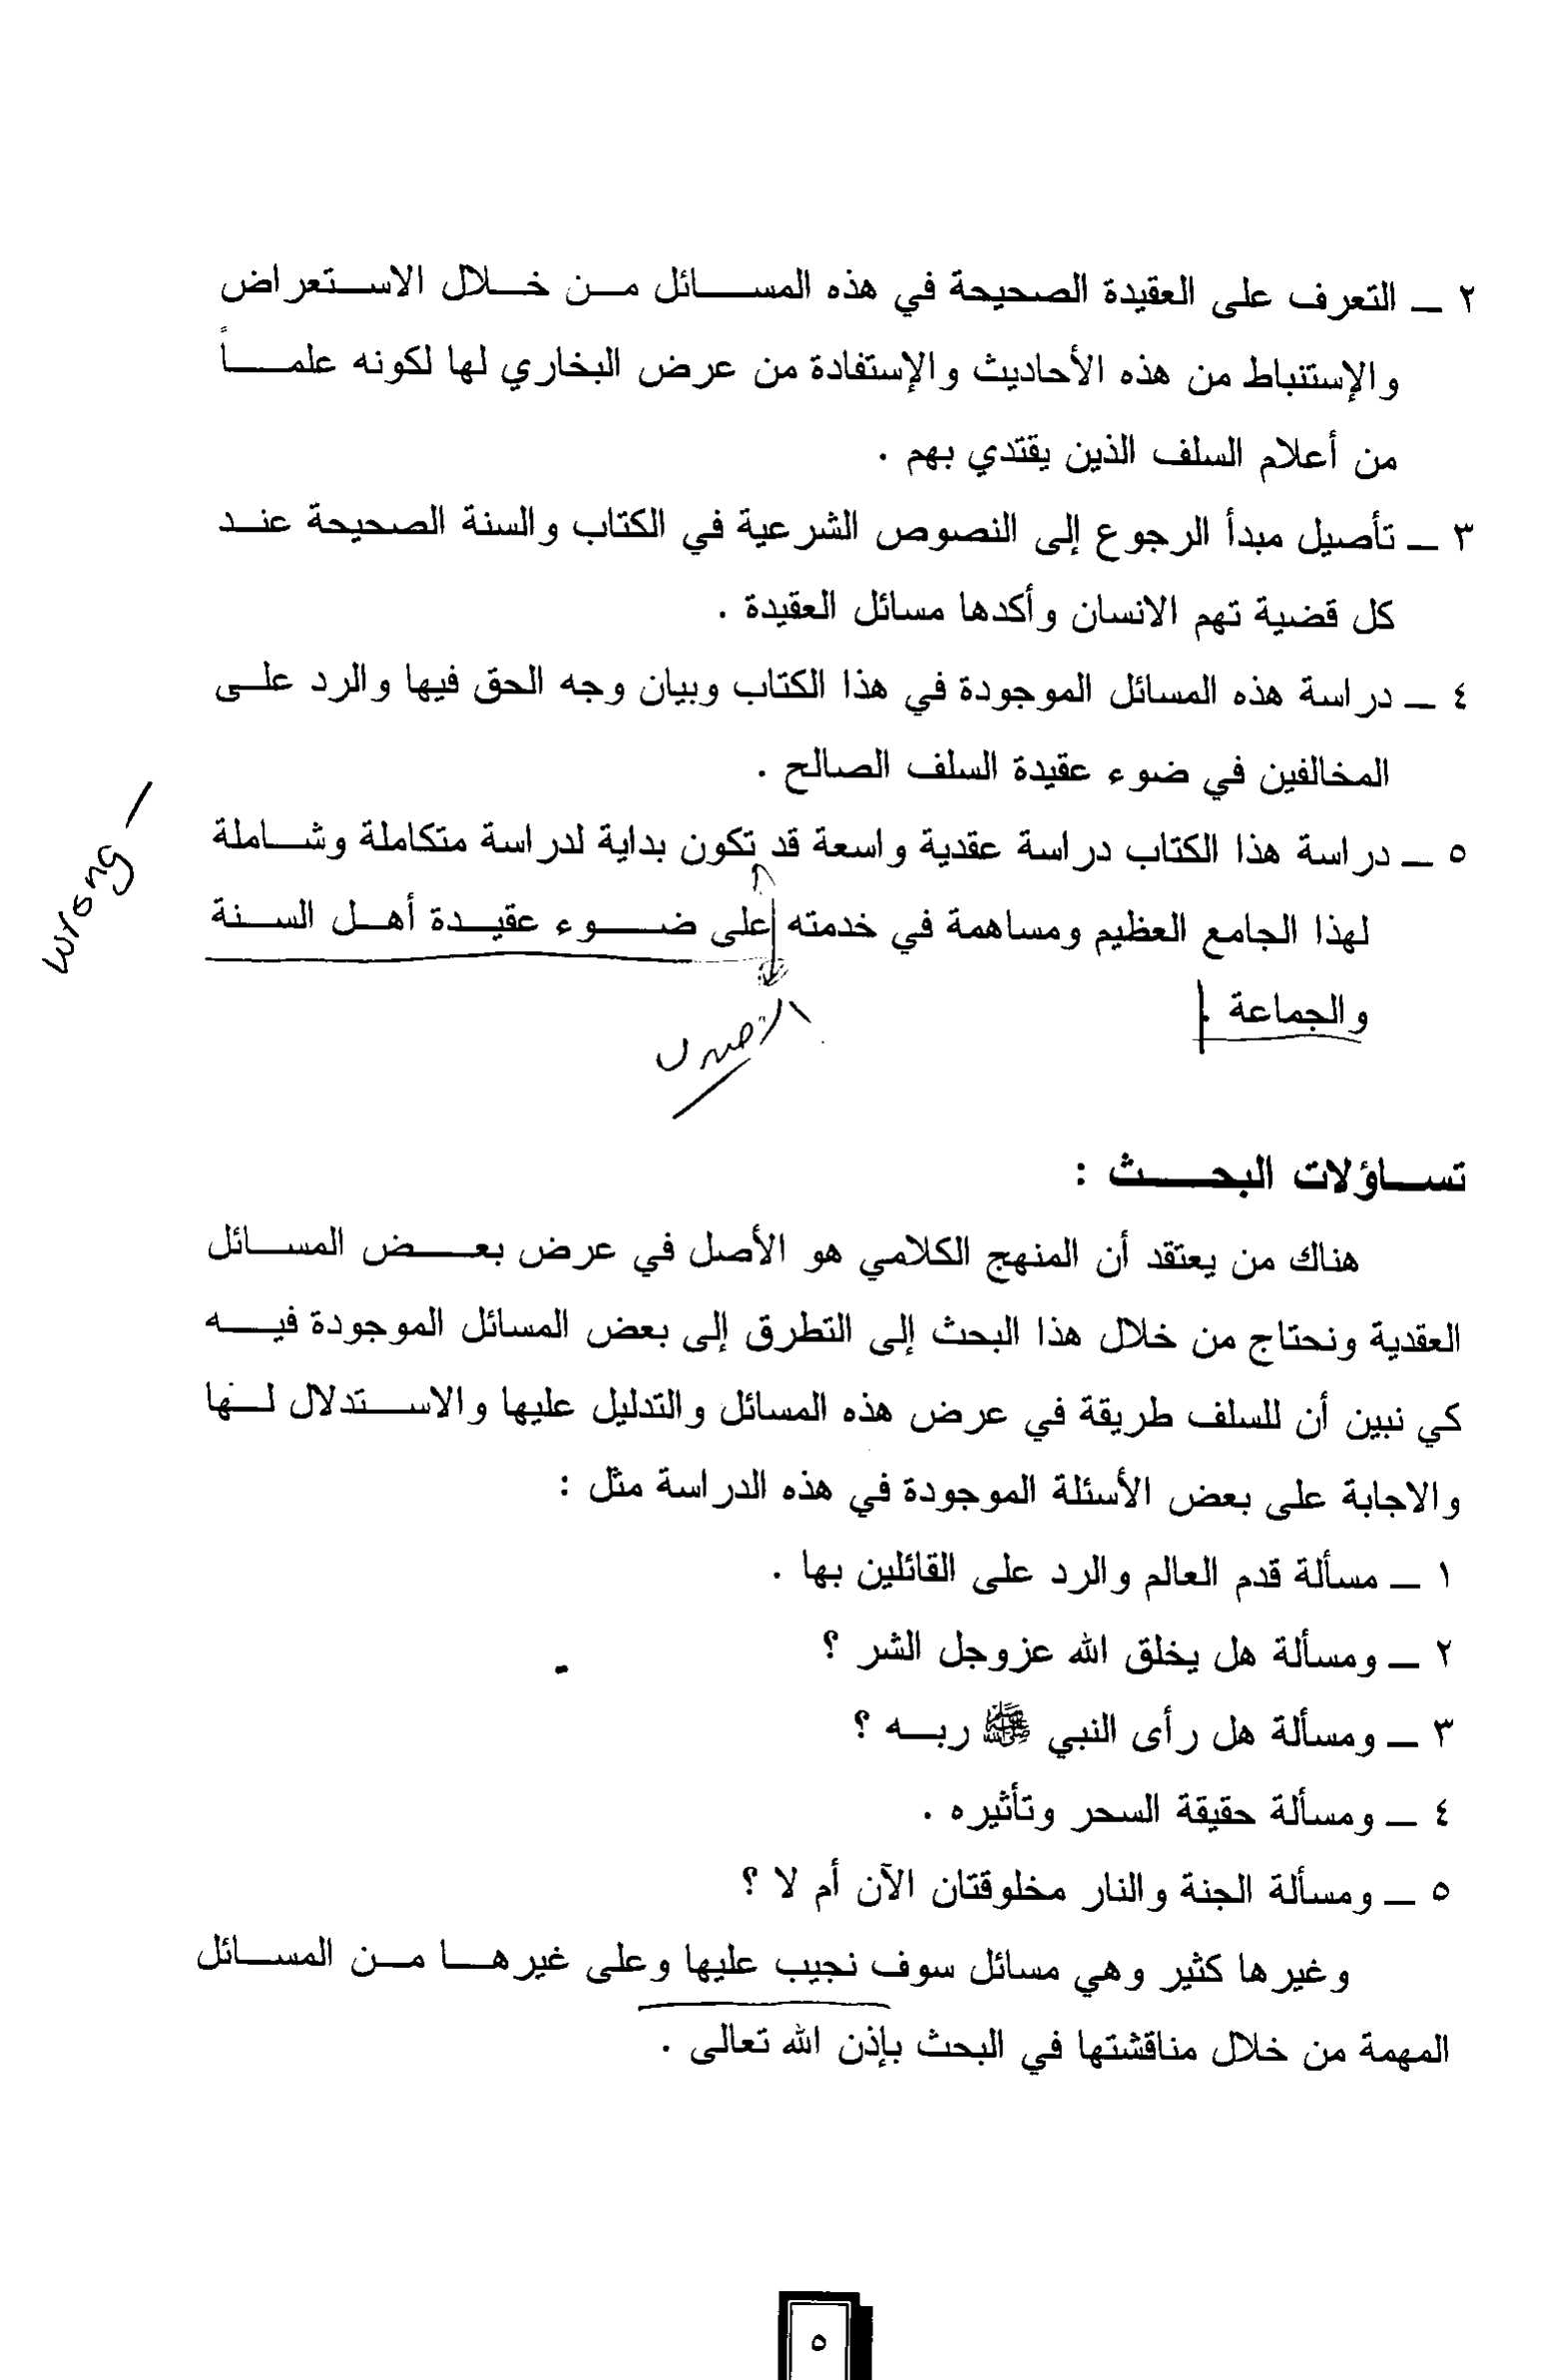 ٢ ــ التعرف على العقيدة الصحيحة في هذه المسائل من خلال الاستعراض
والإستنباط من هذه الأحاديث والإستفادة من عرض البخاري لها لكونه علماً
من أعلام السلف الذين يقتدي بهم .
٣ ــ تأصيل مبدأ الرجوع إلى النصوص الشرعية في الكتاب والسنة الصحيحة عند
كل قضية تهم الانسان وأكدها مسائل العقيدة .
٤ ــ دراسة هذه المسائل الموجودة في هذا الكتاب وبيان وجه الحق فيها والرد على
المخالفين في ضوء عقيدة السلف الصالح .
٥ ــ دراسة هذا الكتاب دراسة عقدية واسعة قد تكون بداية لدراسة متكاملة وشاملة
لهذا الجامع العظيم ومساهمة في خدمته على ضوء عقيدة أهل السنة
والجماعة .
wrong
تساؤلات البحث :
هناك من يعتقد أن المنهج الكلامي هو الأصل في عرض بعض المسائل
العقدية ونحتاج من خلال هذا البحث إلى التطرق إلى بعض المسائل الموجودة فيه
كي نبين أن للسلف طريقة في عرض هذه المسائل والتدليل عليها والاستدلال لها
والاجابة على بعض الأسئلة الموجودة في هذه الدراسة مثل :
١ ــ مسألة قدم العالم والرد على القائلين بها .
٢ ــ ومسألة هل يخلق الله عزوجل الشر ؟
٣ ــ ومسألة هل رأى النبي ﷺ ربه ؟
٤ ــ ومسألة حقيقة السحر وتأثيره .
٥ ــ ومسألة الجنة والنار مخلوقتان الآن أم لا ؟
وغيرها كثير وهي مسائل سوف نجيب عليها وعلى غيرها من المسائل
المهمة من خلال مناقشتها في البحث بإذن الله تعالى .
٥